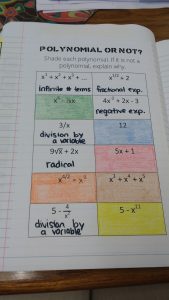 POLYNOMIAL OR NOT?
Shade each polynomial. If it is not a
polynomial, explain why.
x^{1/2} + 2
infinite # terms
fractional exp.
+ 2x - 3
negative exp.
3/x
12
division by
a variable
9√x + 2x
5x + 1
radical
x^{4/2}
5 -
5 -
division by
a variable